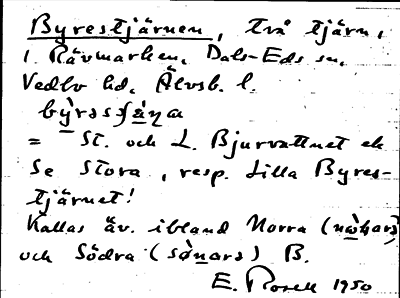 Byrestjärnen, två tjärn,
i Rävmarken, Dals-Eds sn,
Vedbo hd, Älvsb. l.
= St. och L. Bjurvattnet el.
Se Stora, resp. Lilla Byres-
tjärnet!
Kallas äv. ibland Norra
och Södra B.
E. Rosell 1950